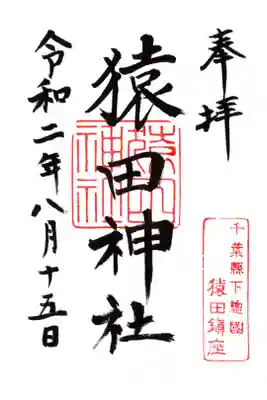 奉拝
千葉縣下總國
猿田鎮座
猿田神社
猿田神社
令和二年八月十五日